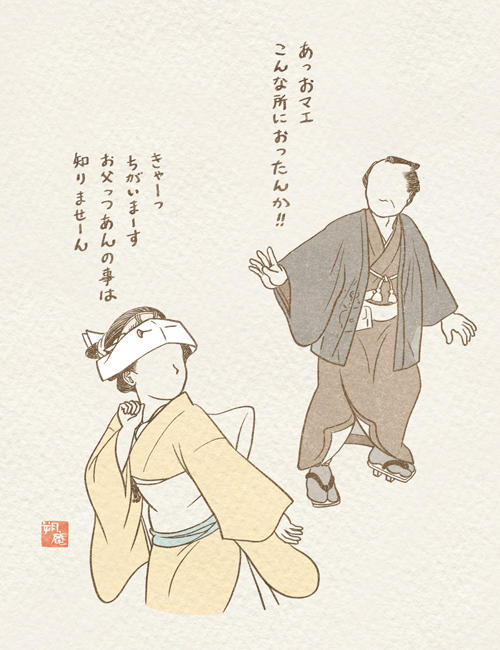 あっおマエ
こんな所におったんか!!
きゃーっ
ちがいまーす
お父っつあんの事は
知りませーん